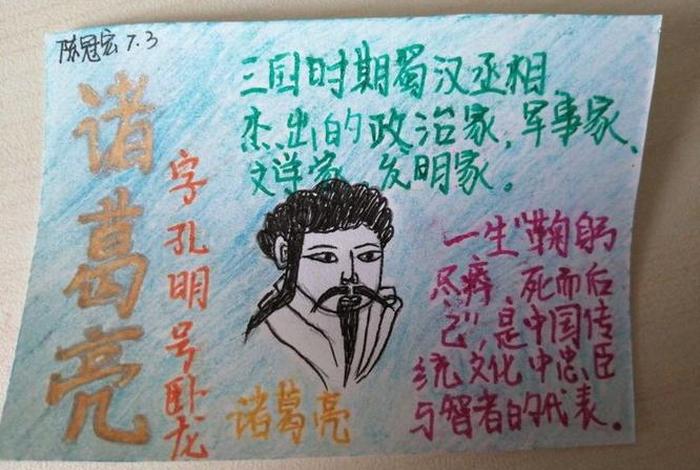 陈冠宏 7.3
诸葛亮
字孔明号卧龙
三国时期蜀汉丞相
杰出的政治家,军事家、
文学家、发明家。
一生"鞠躬
尽瘁,死而后
已",是中国传
统文化中忠臣
与智者的代表。
诸葛亮